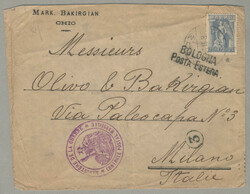 MARK. BAKIRGIAN
CHIO
BOLOGNA
POSTA ESTERA
Messieurs
Olivo & Bakirgian
Via Paleocapa N° 3
Milano
Italie